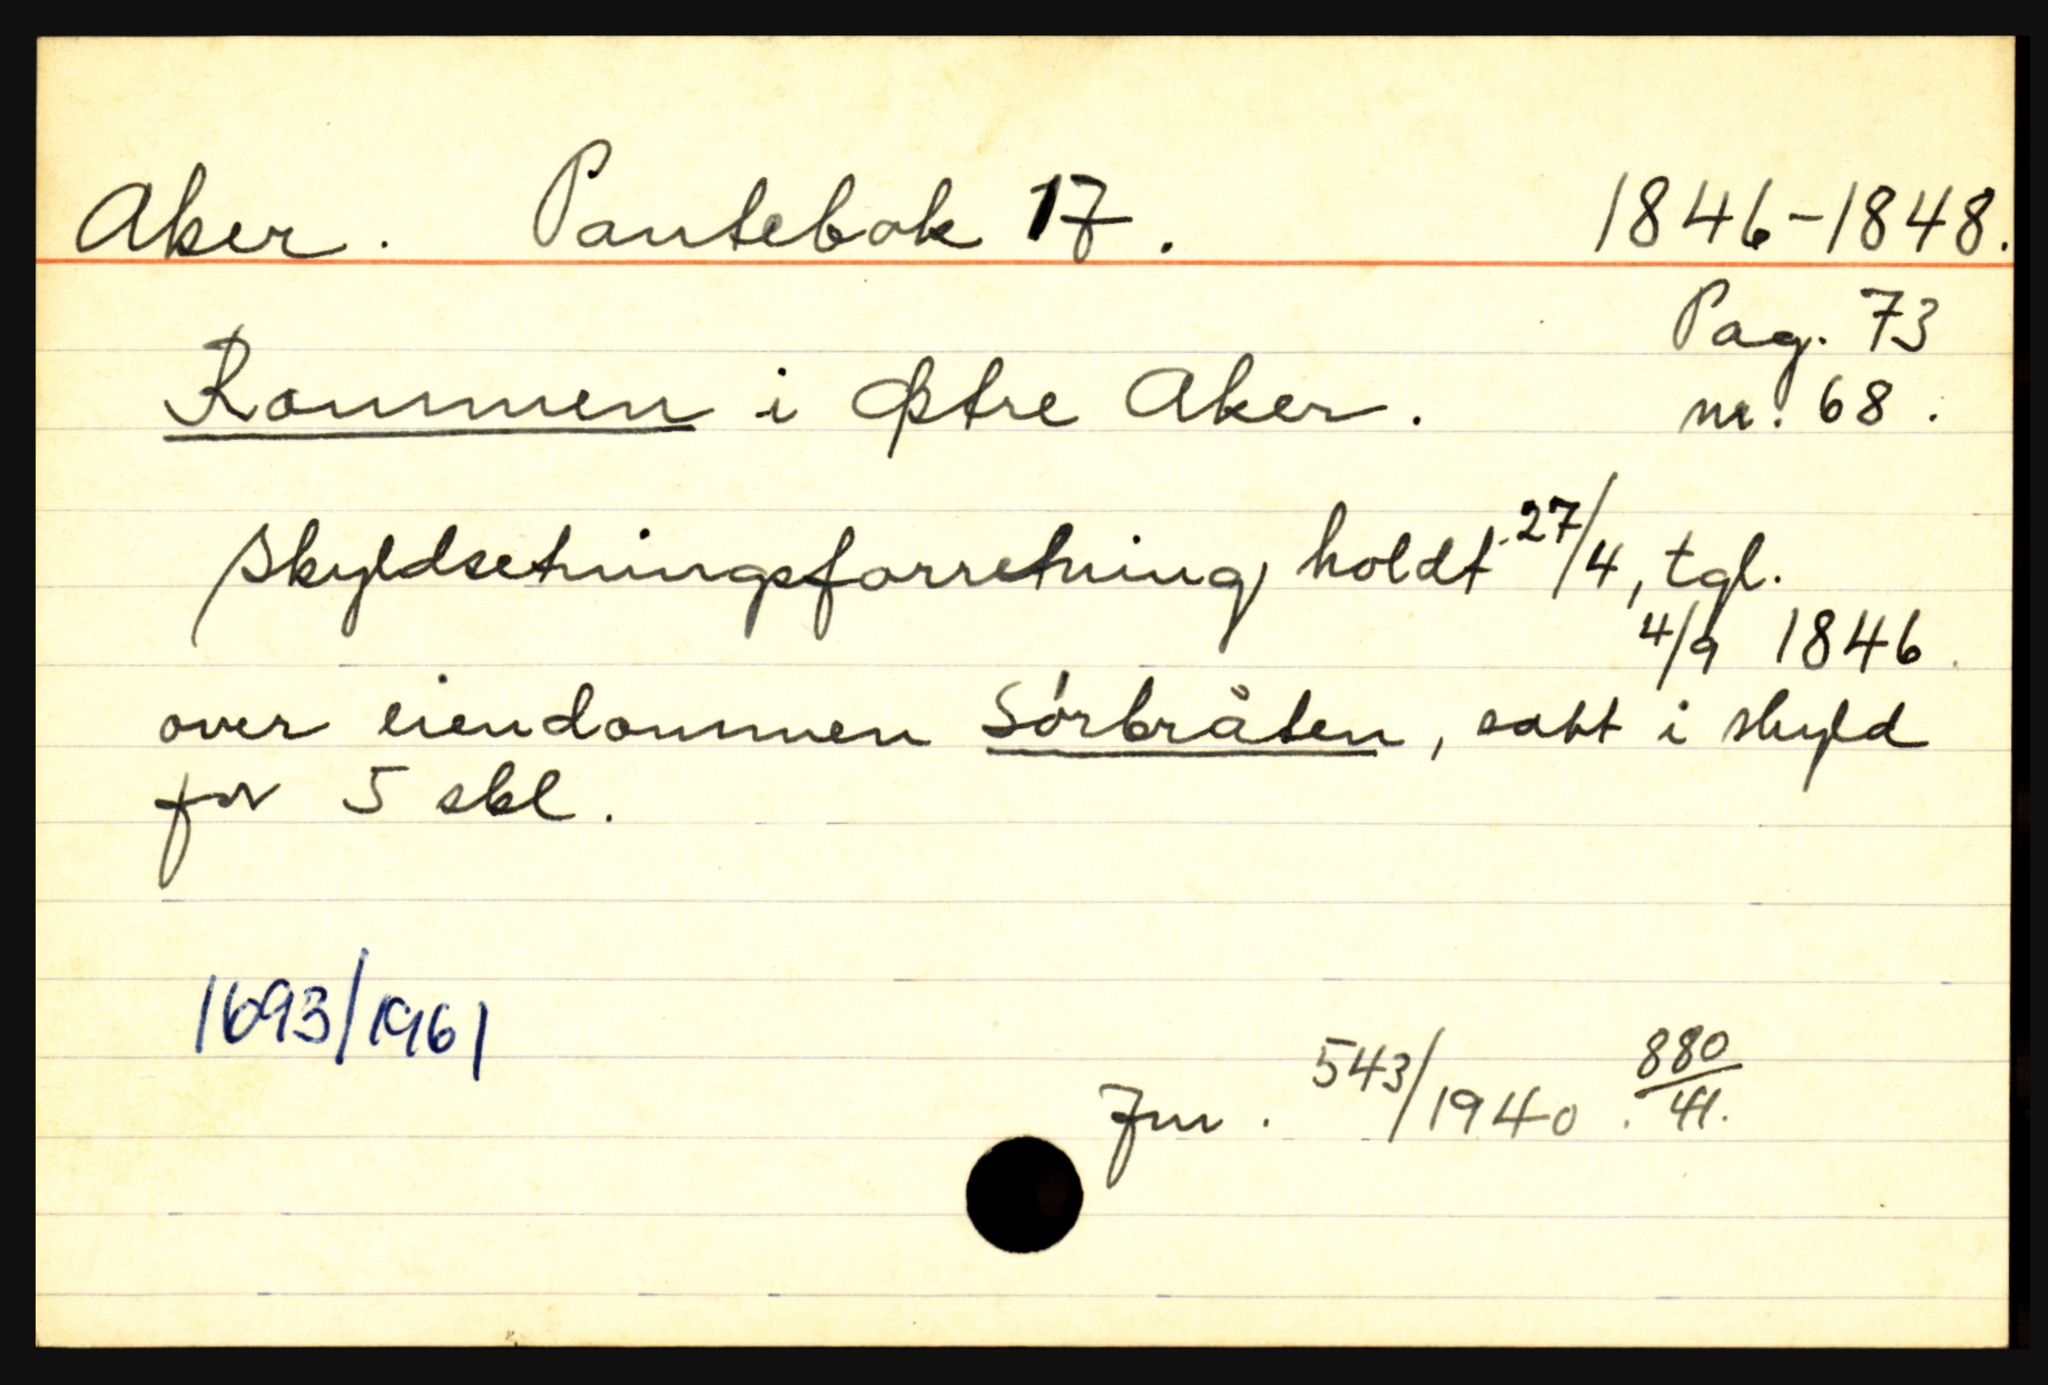 Aker. Pantebok 17. 1846-1848.
Pag. 73
Rommen i Østre Aker. nr. 68.
Skyldsetningsforretning holdt 27/4, tgl.
4/9 1846.
over eiendommen Sørbråten, satt i skyld
for 5 skl.
1693/1961
Jnr. 543/1940. 880/41.